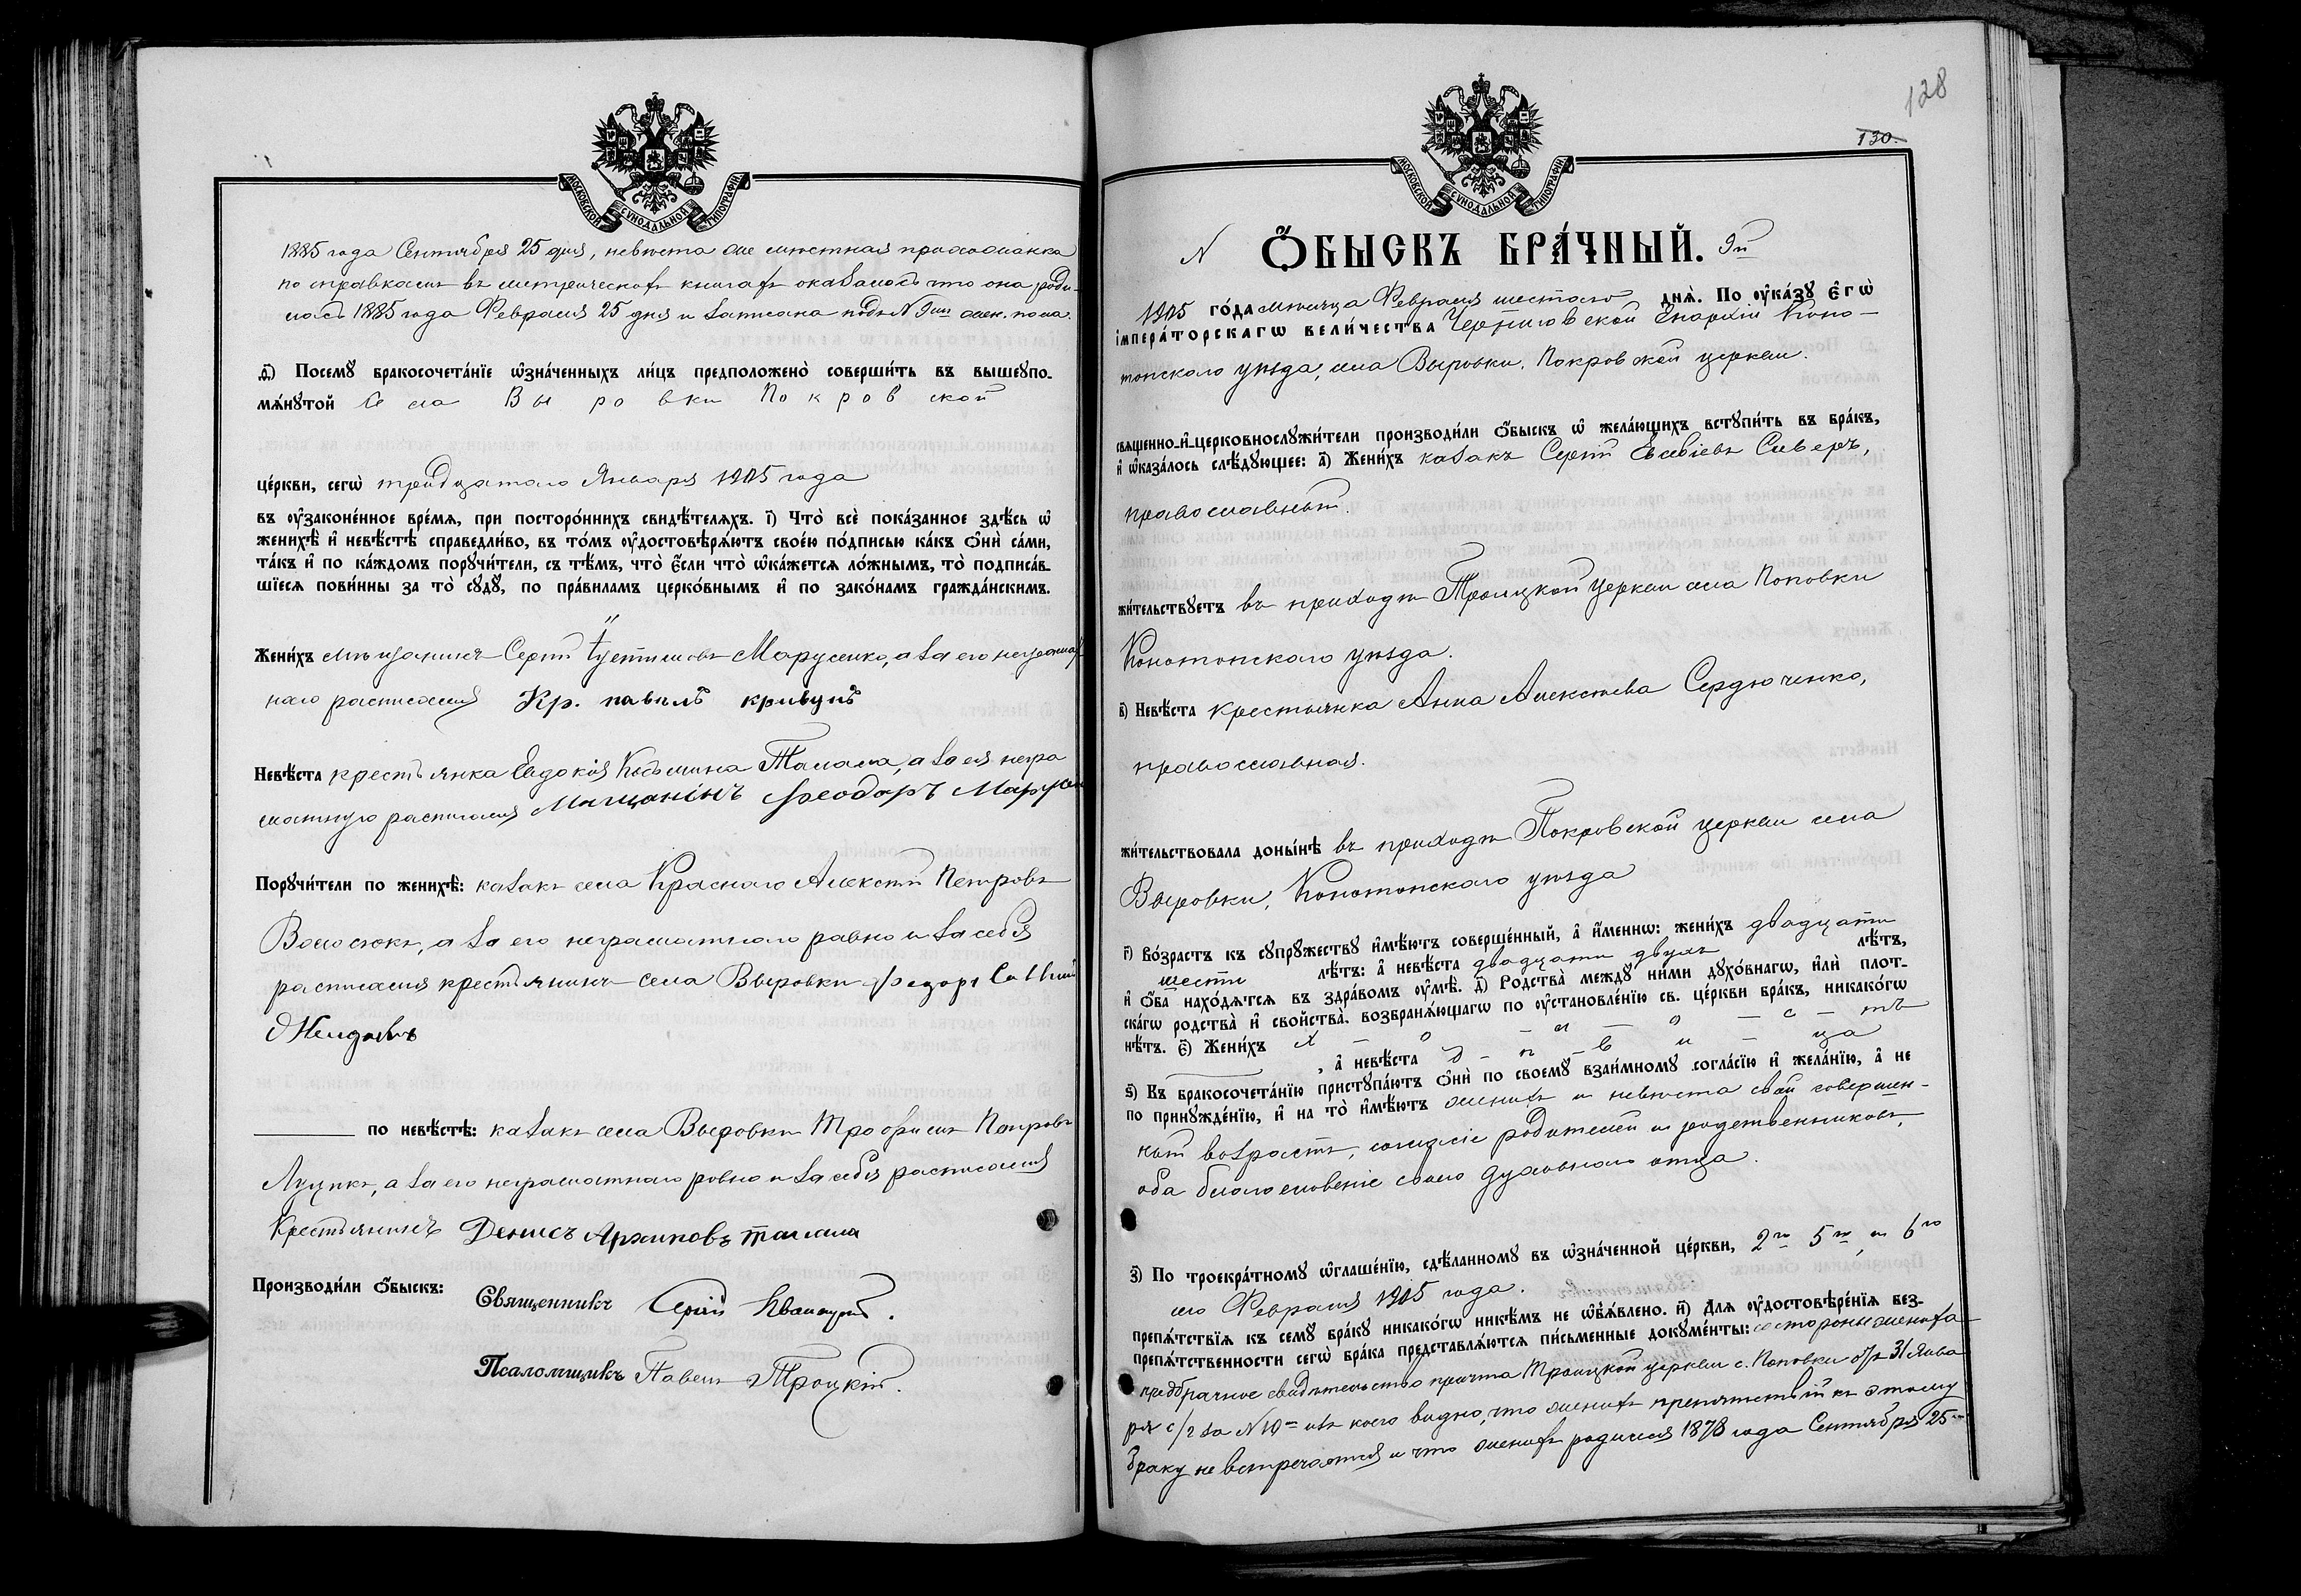 МОСКОВСКОЙ СѴНОДАЛЬНОЙ ТИПОГРАФІИ
1885 года Сентября 25 дня, невѣста же мѣстная прихожанка
по справкамъ въ метрическихъ книгахъ оказалось что она роди-
лась 1885 года Февраля 25 дня и записана подъ N 9мъ жен. пола.
д҃і) Посемꙋ бракосочета́нїе ѡ҆зна́ченныхъ ли́цъ предположено̀ соверши́ть въ вышеꙋпо-
мѧ́нꙋтой Села Выровки Покровской
це́ркви, сегѡ̀ тридцатаго Января 1905 года
въ ᲂу҆законе́нное вре́мѧ, при посторо́ннихъ свидѣ́телѧхъ. і҃) Что̀ всѐ пока́занное здѣ́сь ѡ҆
женихѣ̀ и҆ невѣ́стѣ справедли́во, въ то́мъ ᲂу҆достовѣрѧ́ютъ свое́ю по́дписью ка́къ ѻ҆нѝ са́ми,
та́къ и҆ по ка́ждомъ порꙋчи́тели, съ тѣ́мъ, что̀ є҆́сли что̀ ѡ҆ка́жетсѧ ло́жнымъ, то̀ подписа́в-
шїесѧ пови́нны за то̀ сꙋдꙋ̀, по пра́виламъ церко́внымъ и҆ по зако́намъ гражда́нскимъ.
Жени́хъ мѣщанинъ Сергій Іустиновъ Марусенко, а за его неграмот
наго расписался Кр. павилъ кривцпъ
Невѣ́ста крестьянка Евдокія Козьмина Талала, а за ея негра
мотную расписался Мѣщанінъ Феодоръ Марусен
Порꙋчи́тели по женихѣ̀: казакъ села Краснаго Алексѣй Петровъ
Волосюкъ, а за его неграмотнаго равно и за себя
расписался крестьянинъ села Выровки Федоръ
по невѣ́стѣ: казакъ села Выровки Трофимъ Петровъ
Луцикъ, а за его неграмотнаго ровно и за себя расписался
Крестьянинъ Денисъ Архиповъ талала
Производи́ли ѻ҆́быскъ: Священникъ Сергій
Псаломщикъ Павелъ Троцкій.
128
130.
МОСКОВСКОЙ СѴНОДАЛЬНОЙ ТИПОГРАФІИ
N Ѻ҆́БЫСКЪ БРА́ЧНЫЙ. 9й
1905 го́да мѣсяца Февраля шестаго днѧ̀. По ᲂу҆ка́зꙋ є҆гѡ̀
і҆мпера́торскагѡ вели́чества Черниговской Епархіи Коно-
топскаго уѣзда, села Выровки, Покровской церкви.
свѧщенно-и҆-церковнослꙋжи́тели производи́ли ѻ҆́быскъ ѡ҆ жела́ющихъ встꙋпи́ть въ бра́къ,
и҆ ѡ҆каза́лось слѣ́дꙋющее: а҃) Жени́хъ казакъ Сергій Евсѣіевъ Сиверъ,
православный.
жи́тельствꙋетъ въ приходѣ Троицкой церкви села Поповки
Конотопскаго уѣзда.
в҃) Невѣ́ста крестьянка Анна Алексѣева Сердюченко,
православная.
жи́тельствовала доны́нѣ въ приходѣ Покровской церкви села
Выровки, Конотопскаго уѣзда
г҃) Во́зрастъ къ сꙋпрꙋ́жествꙋ и҆мѣ́ютъ соверше́нный, а҆ и҆́менно: жени́хъ двадцати
шести лѣ́тъ: а҆ невѣ́ста двадцати двухъ лѣ́тъ,
и҆ ѻ҆́ба нахо́дѧтсѧ въ здра́вомъ ᲂу҆мѣ̀. д҃) Родства̀ междꙋ̀ ни́ми дꙋхо́внагѡ, и҆лѝ пло́т-
скагѡ родства̀ и҆ сво́йства̀. возбранѧ́ющагѡ по ᲂу҆становле́нїю св. це́ркви бра́къ, никако́гѡ
нѣ́тъ. є҃) Жени́хъ х - о - л - о - с - тъ
, а҆ невѣ́ста д - ѣ - в и ца
ѕ҃) Къ бракосочета́нїю пристꙋпа́ютъ ѻ҆нѝ по своемꙋ̀ взаи́мномꙋ согла́сїю и҆ жела́нїю, а҆ не
по принꙋжде́нїю, и҆ на то̀ и҆мѣ́ютъ женихъ и невѣста свой совершен-
ный возрастъ, согласіе родителей и родственниковъ,
оба благословеніе своего духовнаго отца.
з҃) По троекра́тномꙋ ѡ҆глаше́нїю, сдѣ́ланномꙋ въ ѡ҆зна́ченной це́ркви, 2го 5го, и 6го
сего Февраля 1905 года.
препѧ́тствїѧ къ семꙋ̀ бра́кꙋ никако́гѡ никѣ́мъ не ѡ҆б̾ѧвлено. и҃) Длѧ ᲂу҆достовѣре́нїѧ без-
препѧ́тственности сегѡ̀ бра́ка представлѧ́ютсѧ пи́сьменные докꙋме́нты: со стороны жениха
предбрачное свидѣтельство причта Троицкой церкви с. Поповки отъ 31 Янва
ря с/г за N 10м изъ коего видно, что женихъ препятствій къ этому
браку не встрѣчается и что женихъ родился 1878 года Сентября 25го